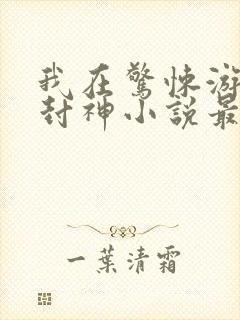 我在驚悚游
封神小説最
一葉清霜